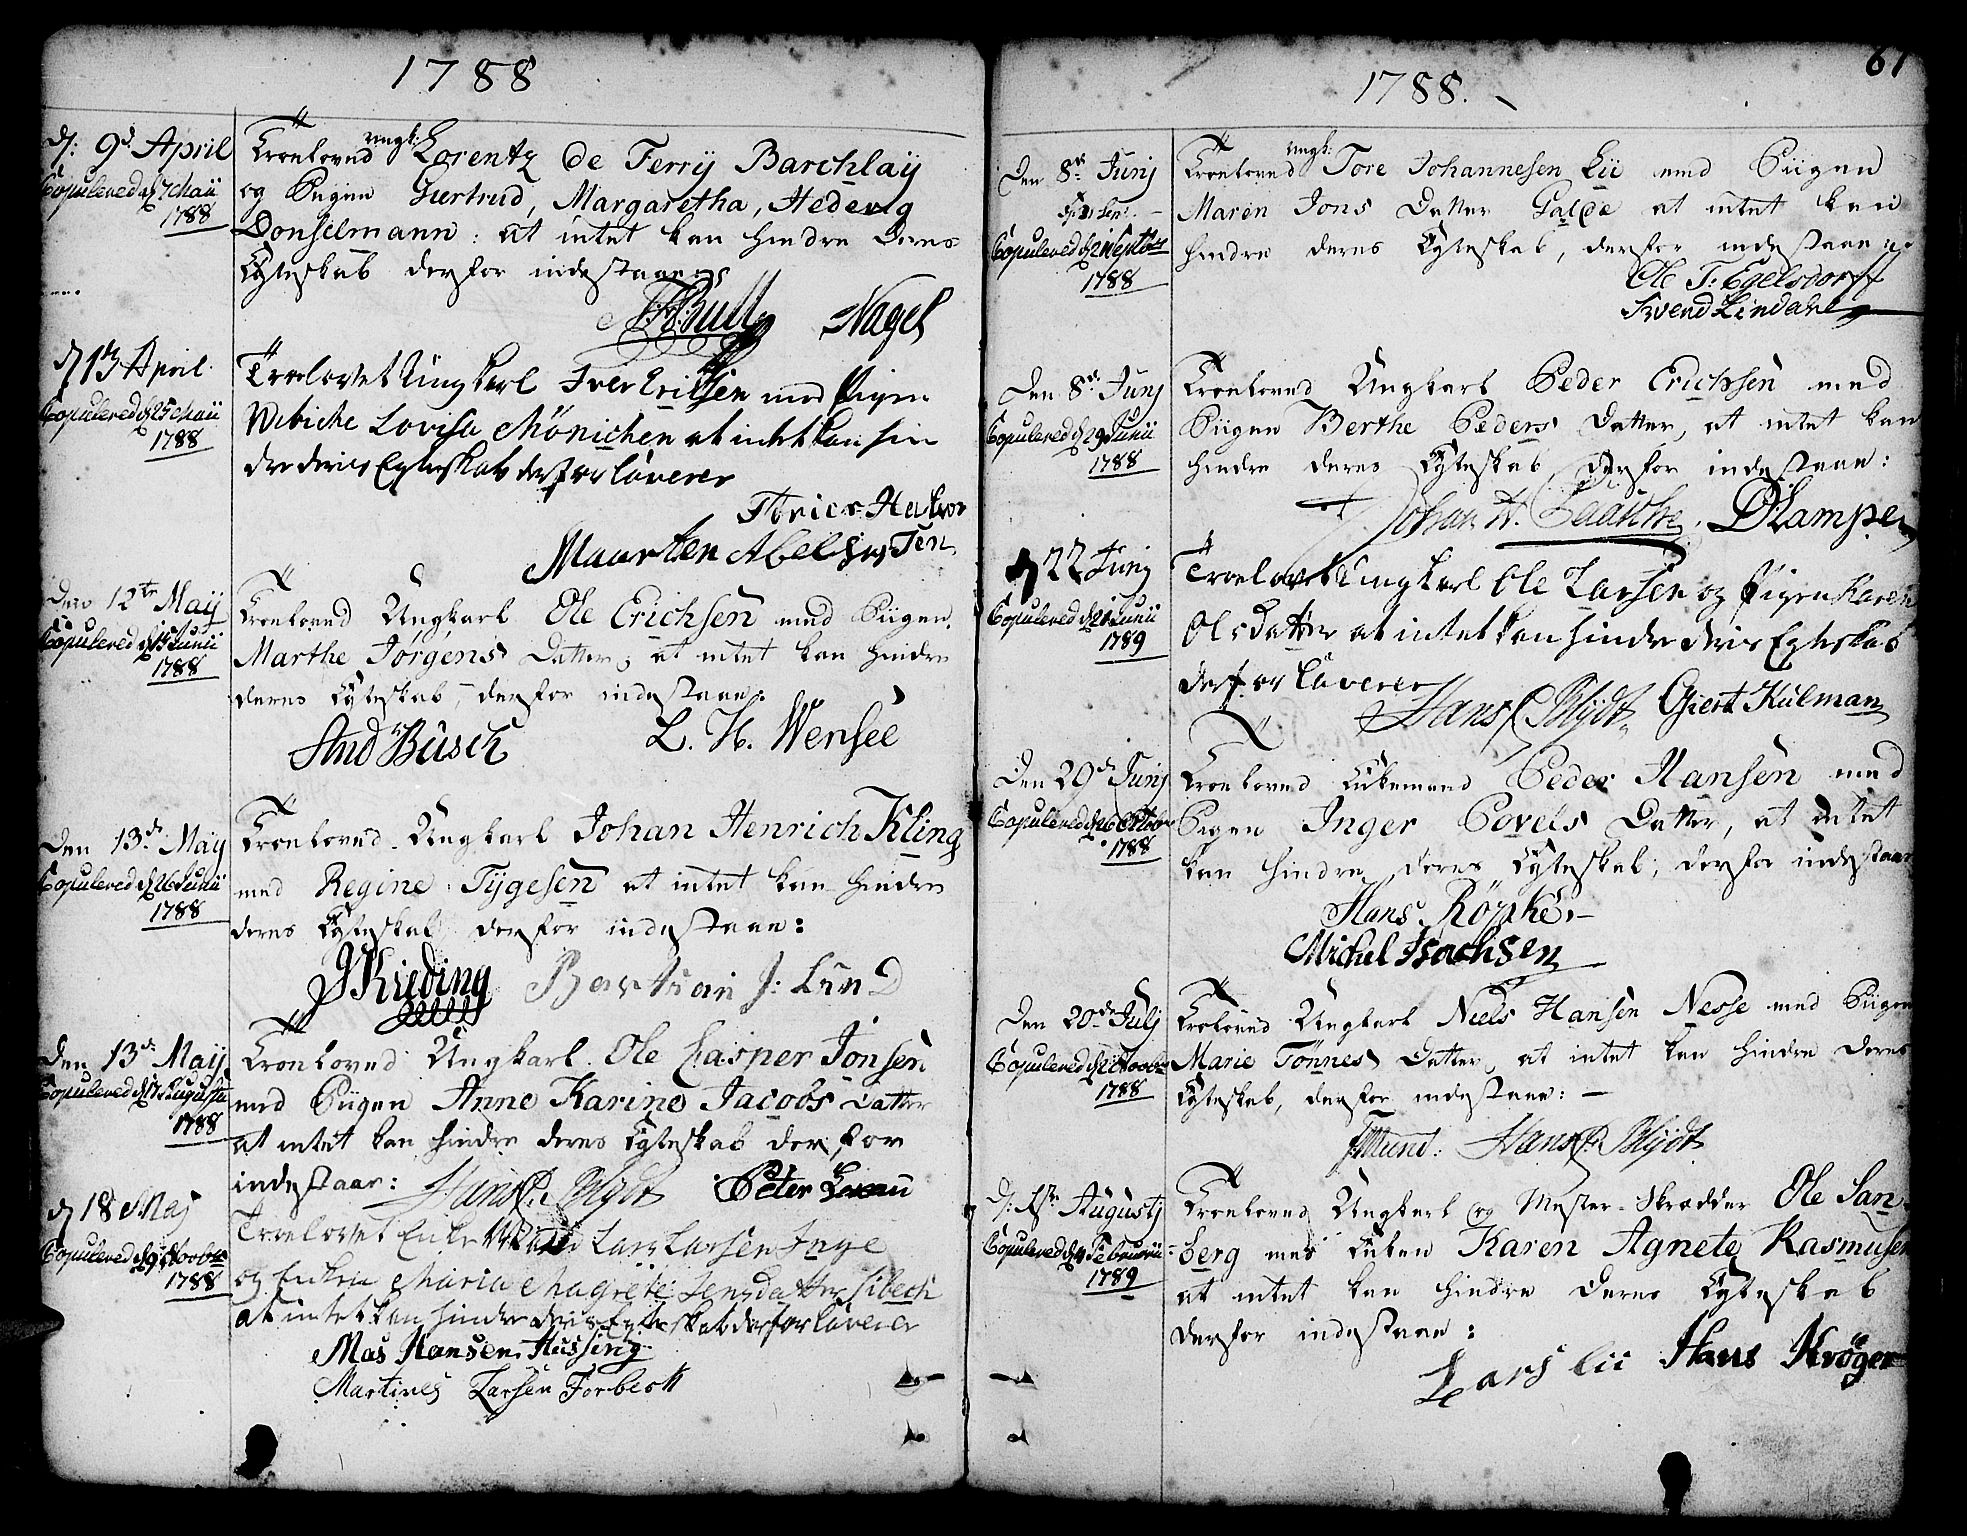 1788
d: 9d April
Copulered d 7 Maii
1788
Troeloved ungk: Lorentz de Ferrÿ Barchlaÿ
og Pigen Giertrud, Margaretha, Hedevig
Donselmann: at intet kan hindre deres
Ægteskab derfor indestaaer
Bull Nagel
d 13 April
Copulered d 25 Maii
1788
Troelovet Ungkarl Iver Erilsen med Pigen
Wibiche Lovisa Mönichen at intet kan hin
dre deris Egteskab derfor Caverer
Maarten Abelsen
Den 12te Maÿ
Copulered d 15 Junii
1788
Troeloved Ungkarl Ole Erichsen med Piigen
Marthe Jørgens Datter, at intet kan hindre
deres Ægteskab, derfor indestaae:
And Büsch L. H. Wensee
Den 13de Maÿ
Copulered d 26 Junii
1788
Troeloved Ungkarl Johan Henrich Kling
med Regine Tÿgesen at intet kan hindre
deres Ægteskab derfor indestaae:
J Krieding Bastian J: Lund
Den 13de Maÿ
Copulered d 17 Augusti
1788
Troeloved Ungkarl Ole Casper Jonsen
med Piigen Anne Karine Jacobs Datter
at intet kan hindre deres Ægteskab derfor
indestaar: Hans C. Blÿdt Peter
d 18 Maj
Copulered d 9 Noobr
1788
Troelovet Enke Mand Lars Larsen Inge
og Enken Maria Magrete Jensdatter Sibech
at intet kan hindre deris Egteskab derfor Caverer
Mas Hansen Hussing
Martines Larsen Forbech
61
1788.
Den 8de Junÿ
Copulered d 21 Septbr
1788
Troeloved ungk: Tore Johannesen Lii med Piigen
Maren Jons Datter Galde at intet kan
hindre deres Ægteskab, derfor indestaae
Ole T: Egelsdorff
Svend Lindahl
Den 8de Junÿ
Copulered d 29 Junii
1788
Troeloved Ungkarl Peder Erichsen med
Piigen Berthe Peders Datter, at intet kan
hindre deres Ægteskab derfor indestaae:
Johan H. Baasche. D Kamper
d 22 Junÿ
Copulered d 21 Junii
1789
Troelovet Ungkarl Ole Larsen og Pigen Karen
Olsdatter at intet kan hindre deris Egteskab
derfor Caverer
Hans C Blÿdt Giert Kulman
Den 29de Junÿ
Copulered d 26 Octobr
1788
Troeloved Enkemand Peder Hansen med
Pigen Inger Povels Datter, at intet
kan hindre deres Ægteskab, derfor indestaae
Hans Röpke.
Michel Isachsen
Den 20de Julÿ
Copulered d 2 Noobr
1788
Troeloved Ungkarl Niels Hansen Nesse med Piigen
Marie Tönnes Datter, at intet kan hindre deres
Ægteskab, derfor indestaae:
Mund. Hans C. Blÿdt
d: 1ste Augustÿ
Copulered d 4 Februarii
1789
Troeloved Ungkarl og Mester-Skrædder Ole San-
berg med Enken Karen Agnete Rasmusen
at intet kan hindre deres Ægteskab
derfor indestaae:
Lars Lii Hans Krøger